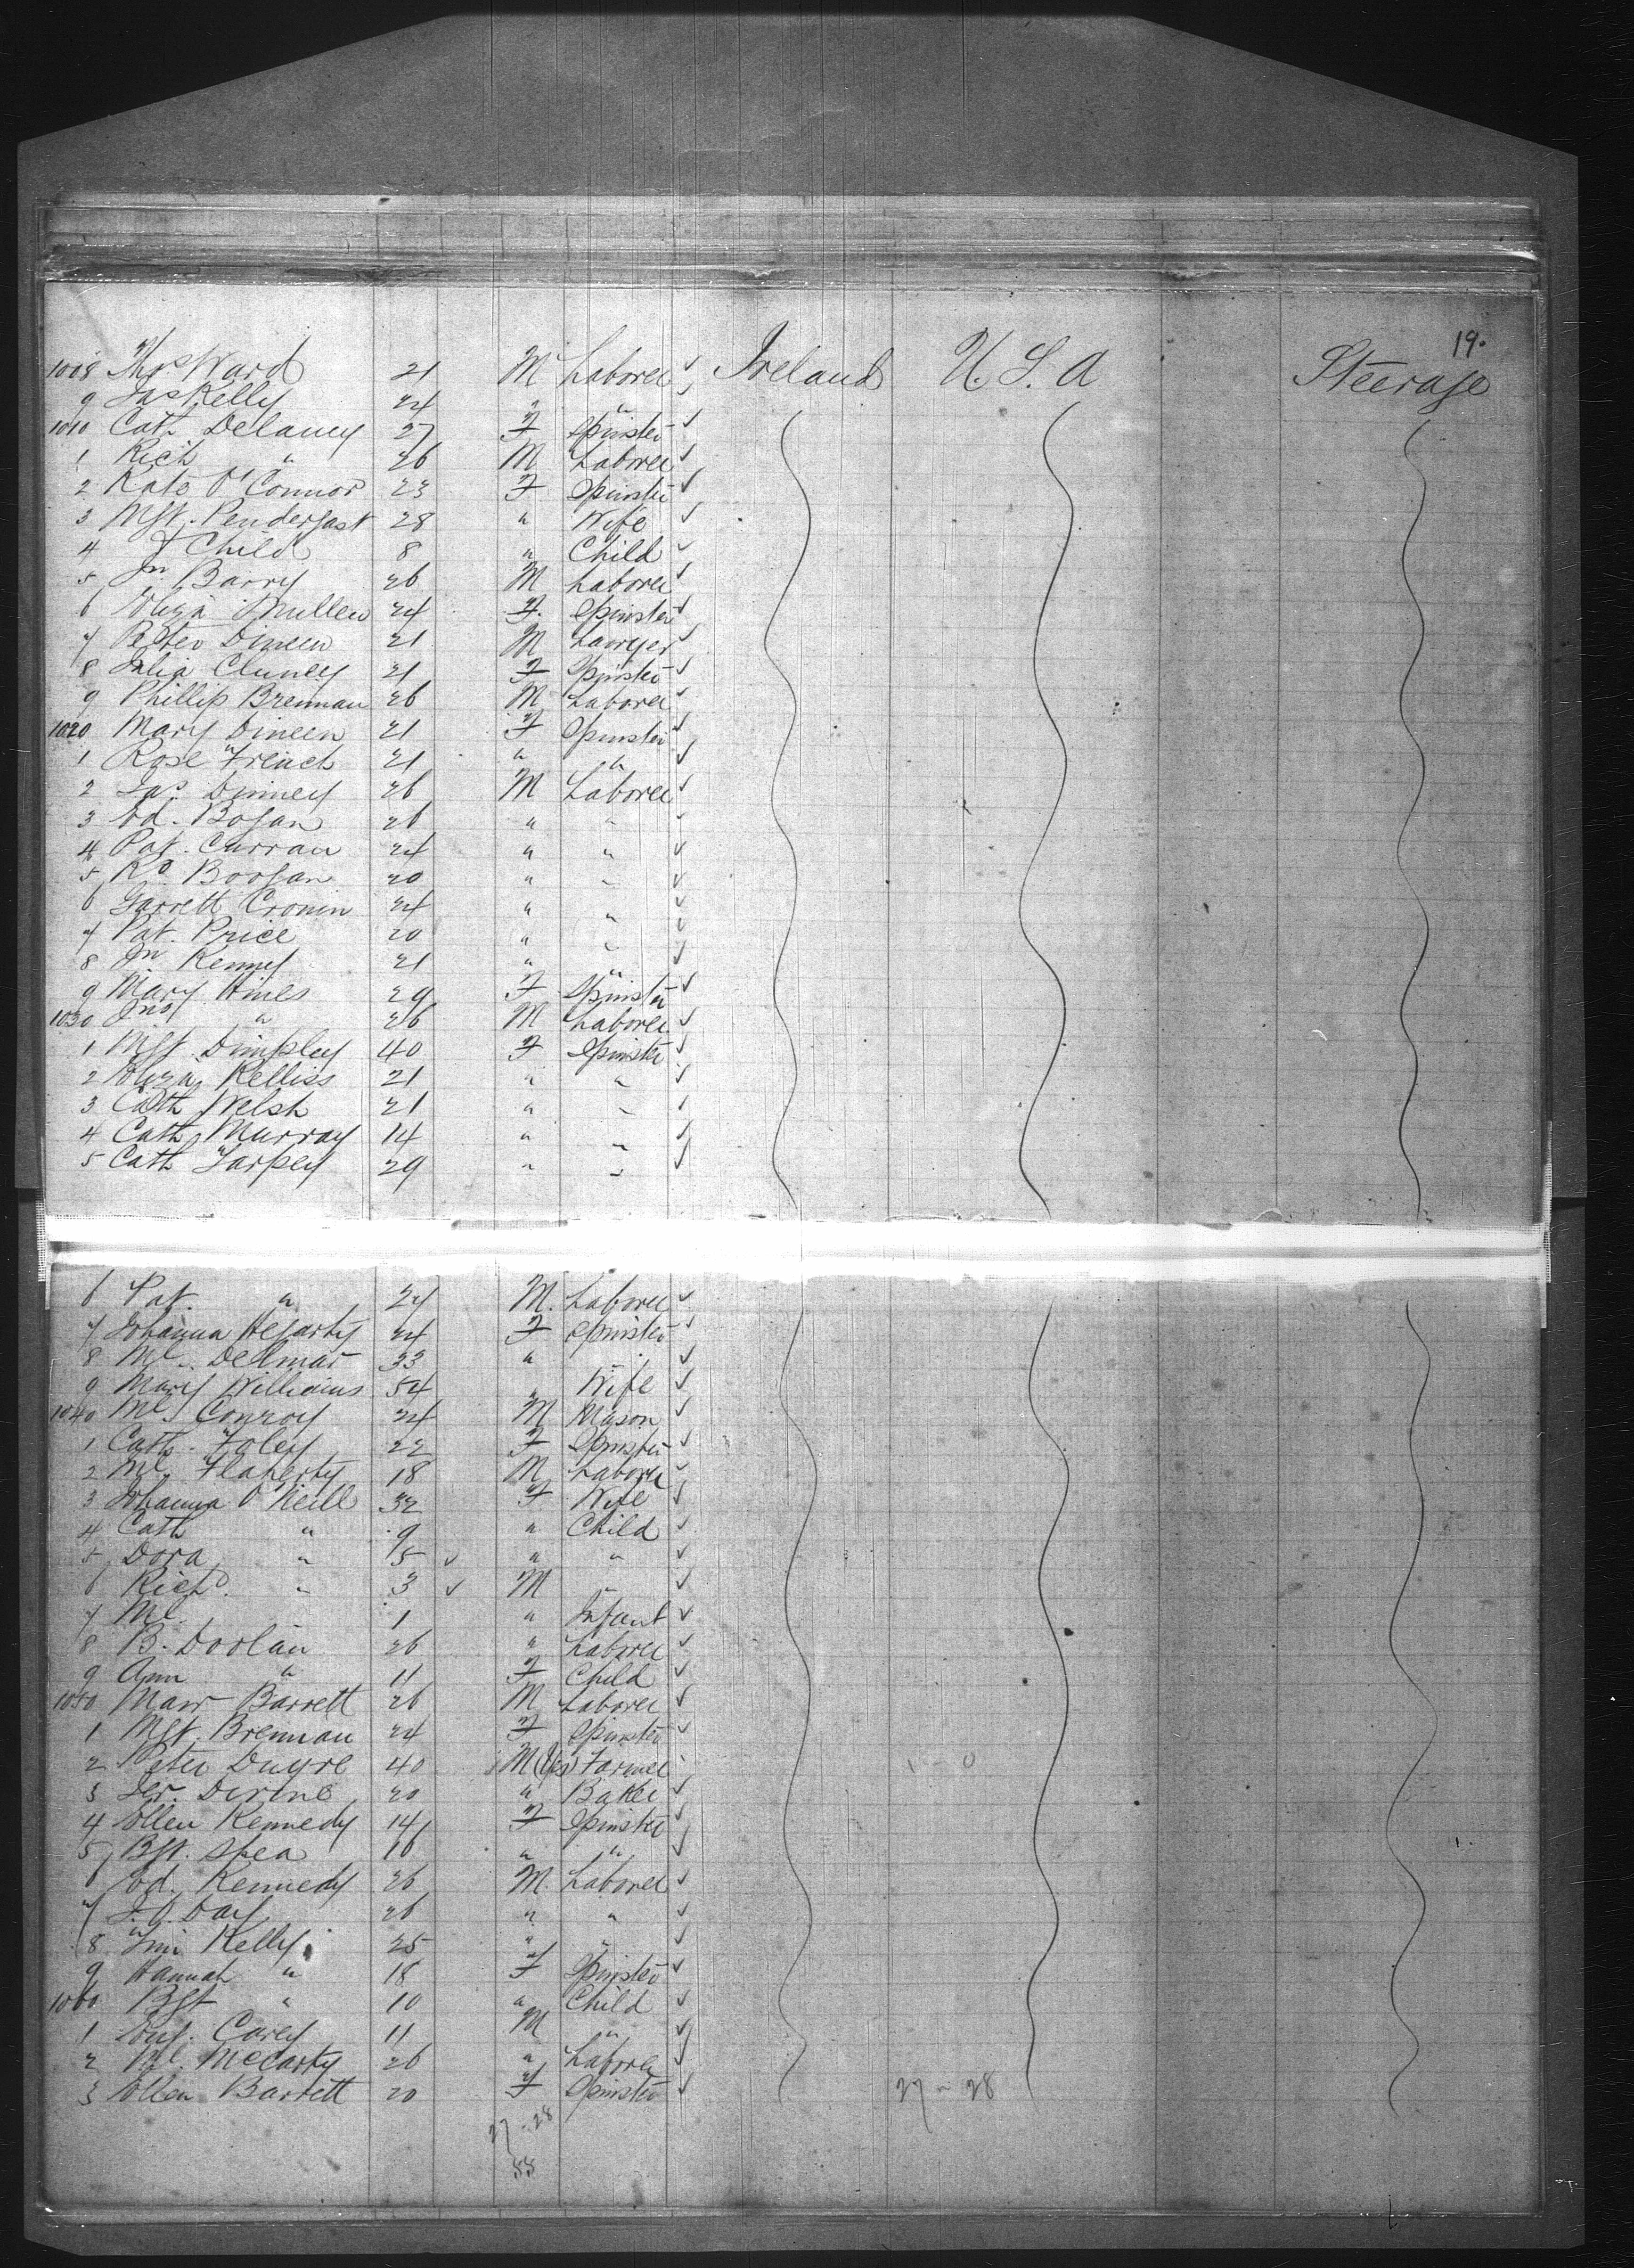 19.
1008 Thos Ward 21 M Laborer ✓ Ireland U.S.A Steerage
9 Jas Kelly 24 " " ✓
1010 Cath Delaney 27 F Spinster ✓
1 Rich " 26 M Laborer ✓
2 Kate O'Connor 23 F Spinster ✓
3 Mgt. Pendergast 28 " Wife ✓
4 & Child 8 " Child ✓
5 Jn Barry 26 M Laborer ✓
6 Eliza Mullen 24 F. Spinster ✓
7 Peter Dineen 21 M Lawyer ✓
8 Julia Cluney 21 F Spinster ✓
9 Phillip Brennan 26 M Laborer ✓
1020 Mary Dineen 21 F Spinster ✓
1 Rose French 21 " " ✓
2 Jas. Dinney 26 M Laborer ✓
3 Ed. Bogan 26 " " ✓
4 Pat. Curran 24 " " ✓
5 Rd. Boogan 20 " " ✓
6 Garrett Cronin 24 " " ✓
7 Pat. Price 20 " " ✓
8 Jn Kenney 21 " " ✓
9 Mary Hines 29 F Spinster ✓
1030 Jno " 26 M Laborer ✓
1 Mgt Dimpsley 40 F Spinster ✓
2 Eliza Kelliss 21 " " ✓
3 Cath Welsh 21 " " ✓
4 Cath Murray 14 " " ✓
5 Cath Tarpey 29 " " ✓
6 Pat. " 24 M. Laborer ✓
7 Johanna Hegarty 24 F Spinster ✓
8 Ml. Dellmar 33 " " ✓
9 Mary Williams 54 " Wife ✓
1040 Ml Conroy 24 M Mason ✓
1 Cath. Foley 22 F Spinster ✓
2 Ml. Flaherty 18 M Laborer ✓
3 Johanna O'Neill 32 F Wife ✓
4 Cath " 9 " Child ✓
5 Dora " 5 ✓ " " ✓
6 Richd. " 3 ✓ M " ✓
7 Ml. 1 " Infant ✓
8 B. Doolan 26 " Laborer ✓
9 Ann " 11 F Child ✓
1050 Maur Barrett 26 M Laborer ✓
1 Mgt. Brennan 24 F Spinster ✓
2 Peter Duyre 40 M (Yes) Farmer 1 - 0
3 Jer. Dirine 20 " Baker ✓
4 Ellen Kennedy 14 F Spinster ✓
5 Bgt. Shea 16 " " ✓
6 Ed. Kennedy 26 M. Laborer ✓
7 J.O. Day 26 " " ✓
8 Tim Kelly 25 " " ✓
9 Hannah " 18 F Spinster ✓
1060 Bgt " 10 " Child ✓
1 Eug. Carey 11 M " ✓
2 Ml. McCarty 26 " Laborer ✓
3 Ellen Barrett 20 F Spinster ✓ 27 - 28
27 - 28
55